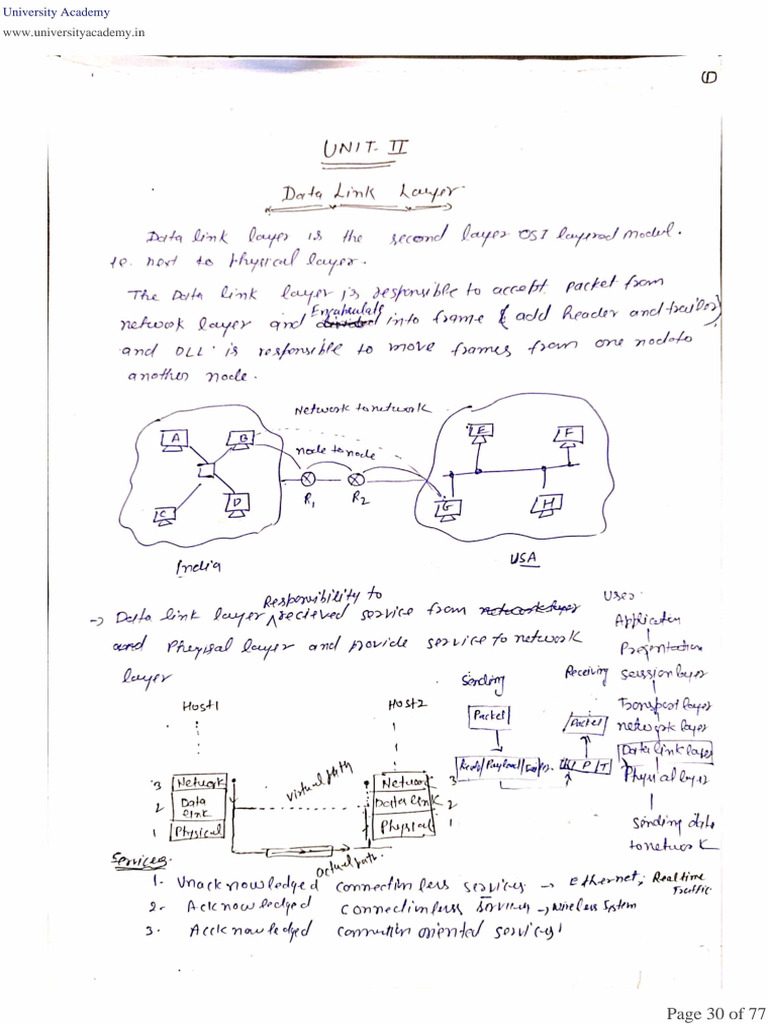 University Academy
www.universityacademy.in
1
UNIT-II
Data Link Layer
Data link layer is the second layer OSI layered model.
ie. next to Physical layer.
The Data link layer is responsible to accept packet from
network layer and Encapsulate divided into frame (add header and trailor)
and DLL is responsible to move frames from one node to
another node.
Network to network
node to node
A
B
C
D
R1
R2
E
F
G
H
India
USA
→ Data link layer Responsibility to recieved service from network layer
and Physical layer and provide service to network
layer
User
Application
Presentation
session layer
Transport layer
network layer
Data link layer
Physical layer
Sending data
to network
Sending
Receiving
Packet
Packet
Head/Payload/
H/P/T
Host1
Host2
3 Network
2 Data link
1 Physical
Network 3
Data link 2
Physical 1
virtual path
actual path.
Services:
1. Unacknowledged connectionless services → Ethernet, Real time Traffic
2. Acknowledged connectionless services → Wireless System
3. Accknowledged connection oriented services
Page 30 of 77